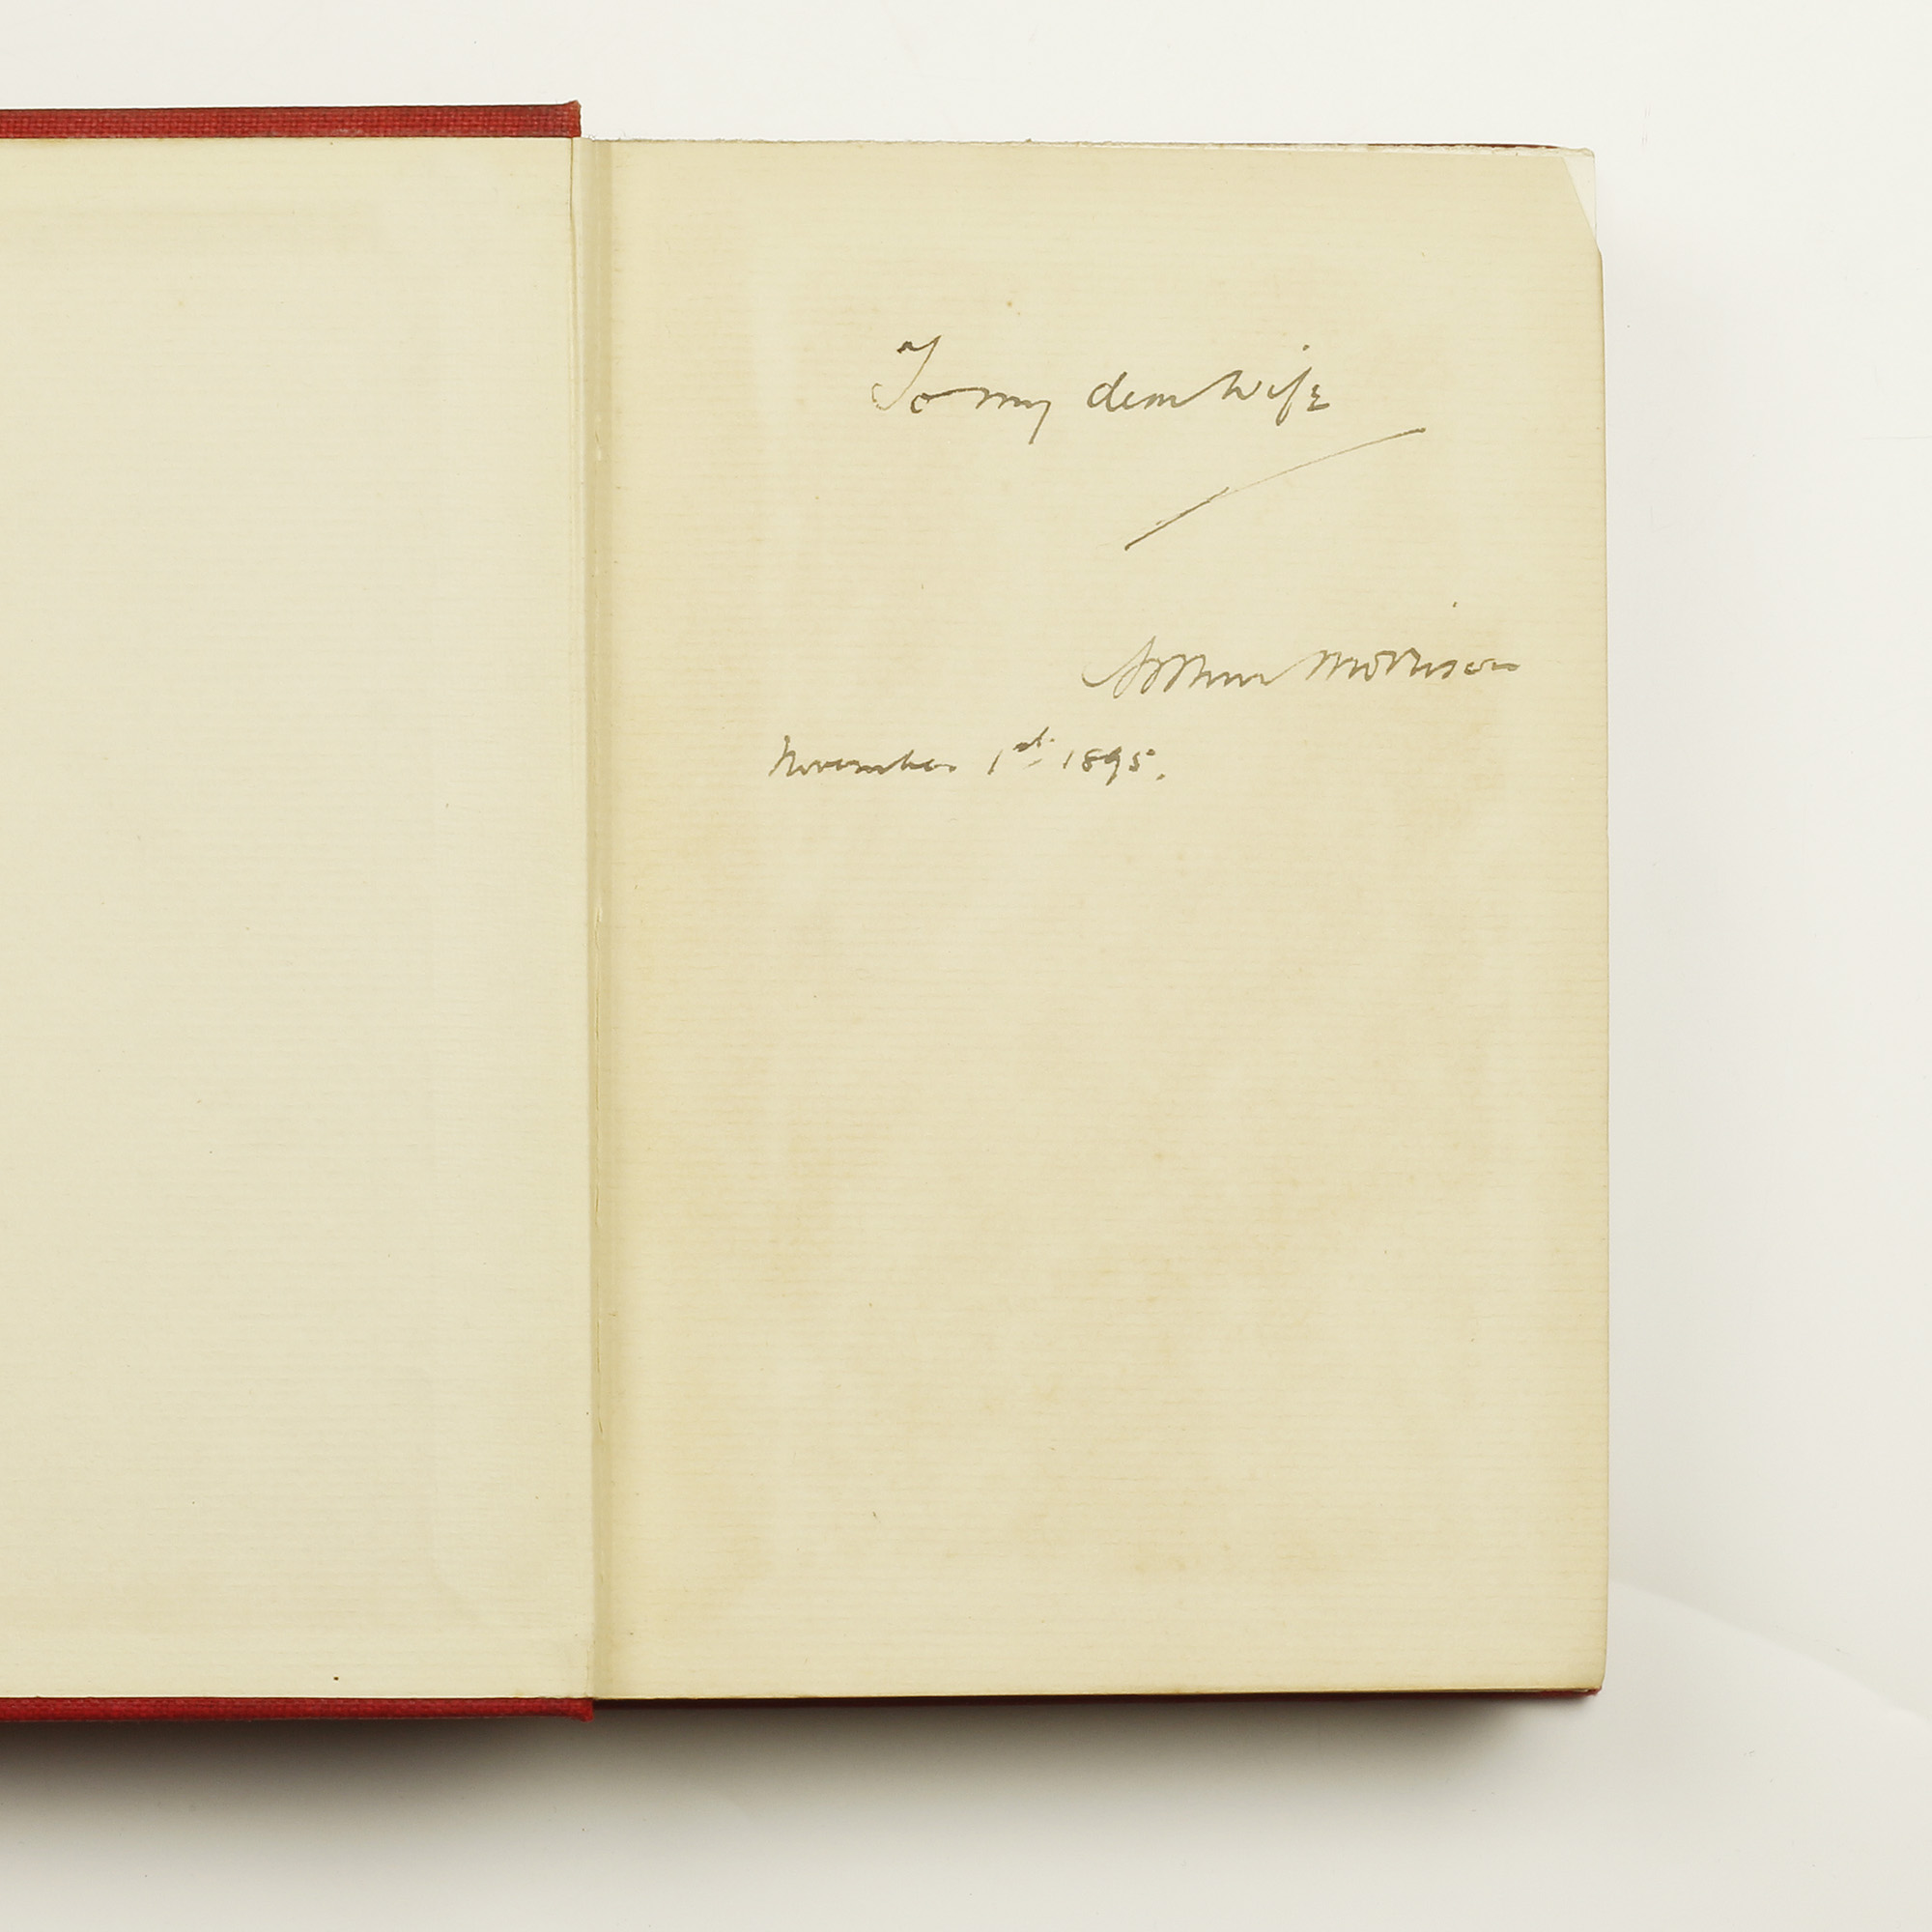 To my dear wife
Arthur Morrison
November 1st. 1895.